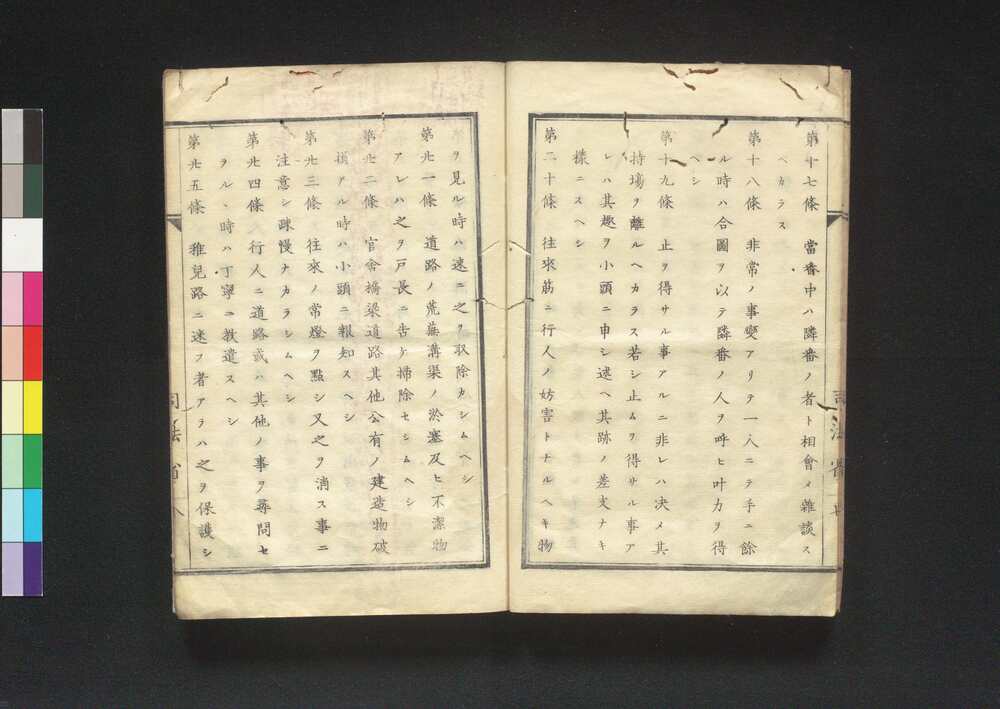 第十七條　當番中ハ隣番ノ者ト相會メ雜談ス
ベカラス
第十八條　非常ノ事變アリテ一人ニテ手ニ餘
ル時ハ合圖ヲ以テ隣番ノ人ヲ呼ヒ叶力ヲ得
ヘシ
第十九條　止ヲ得サル事アルニ非レハ决メ其
持塲ヲ離ルヘカラス若シ止ムヲ得サル事ア
レハ其趣ヲ小頭ニ申シ述ヘ其跡ノ差支ナキ
樣ニスヘシ
第二十條　往來筋ニ行人ノ妨害トナルヘキ物
ヲ見ル時ハ速ニ之ヲ取除カシムヘシ
第廿一條　道路ノ荒蕪溝渠ノ淤塞及ヒ不潔物
アレハ之ヲ戸長ニ告ケ掃除セシムヘシ
第廿二條　官舍橋梁道路其他公有ノ建造物破
損アル時ハ小頭ニ報知スヘシ
第廿三條　往來ノ常燈ヲ點シ又之ヲ消ス事ニ
注意シ疎慢ナカラシムヘシ
第廿四條　行人ニ道路或ハ其他ノ事ヲ尋問セ
ラルヽ時ハ丁寧ニ教遣スヘシ
第廿五條　稚兒路ニ迷フ者アラハ之ヲ保護シ
司法省
八